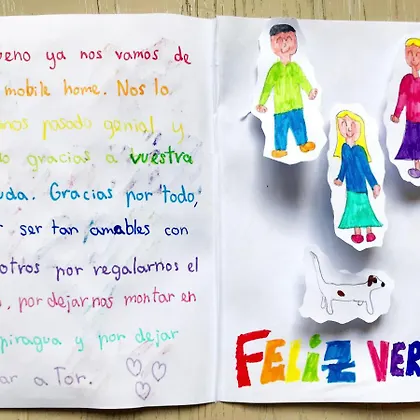 ueno ya nos vamos de
mobile home. Nos lo
mos pasado genial y
o gracias a vuestra
uda. Gracias por todo,
r ser tan amables con
otros por regalarnos el
, por dejarnos montar en
piragua y por dejar
ar a Tor.
FELIZ VER